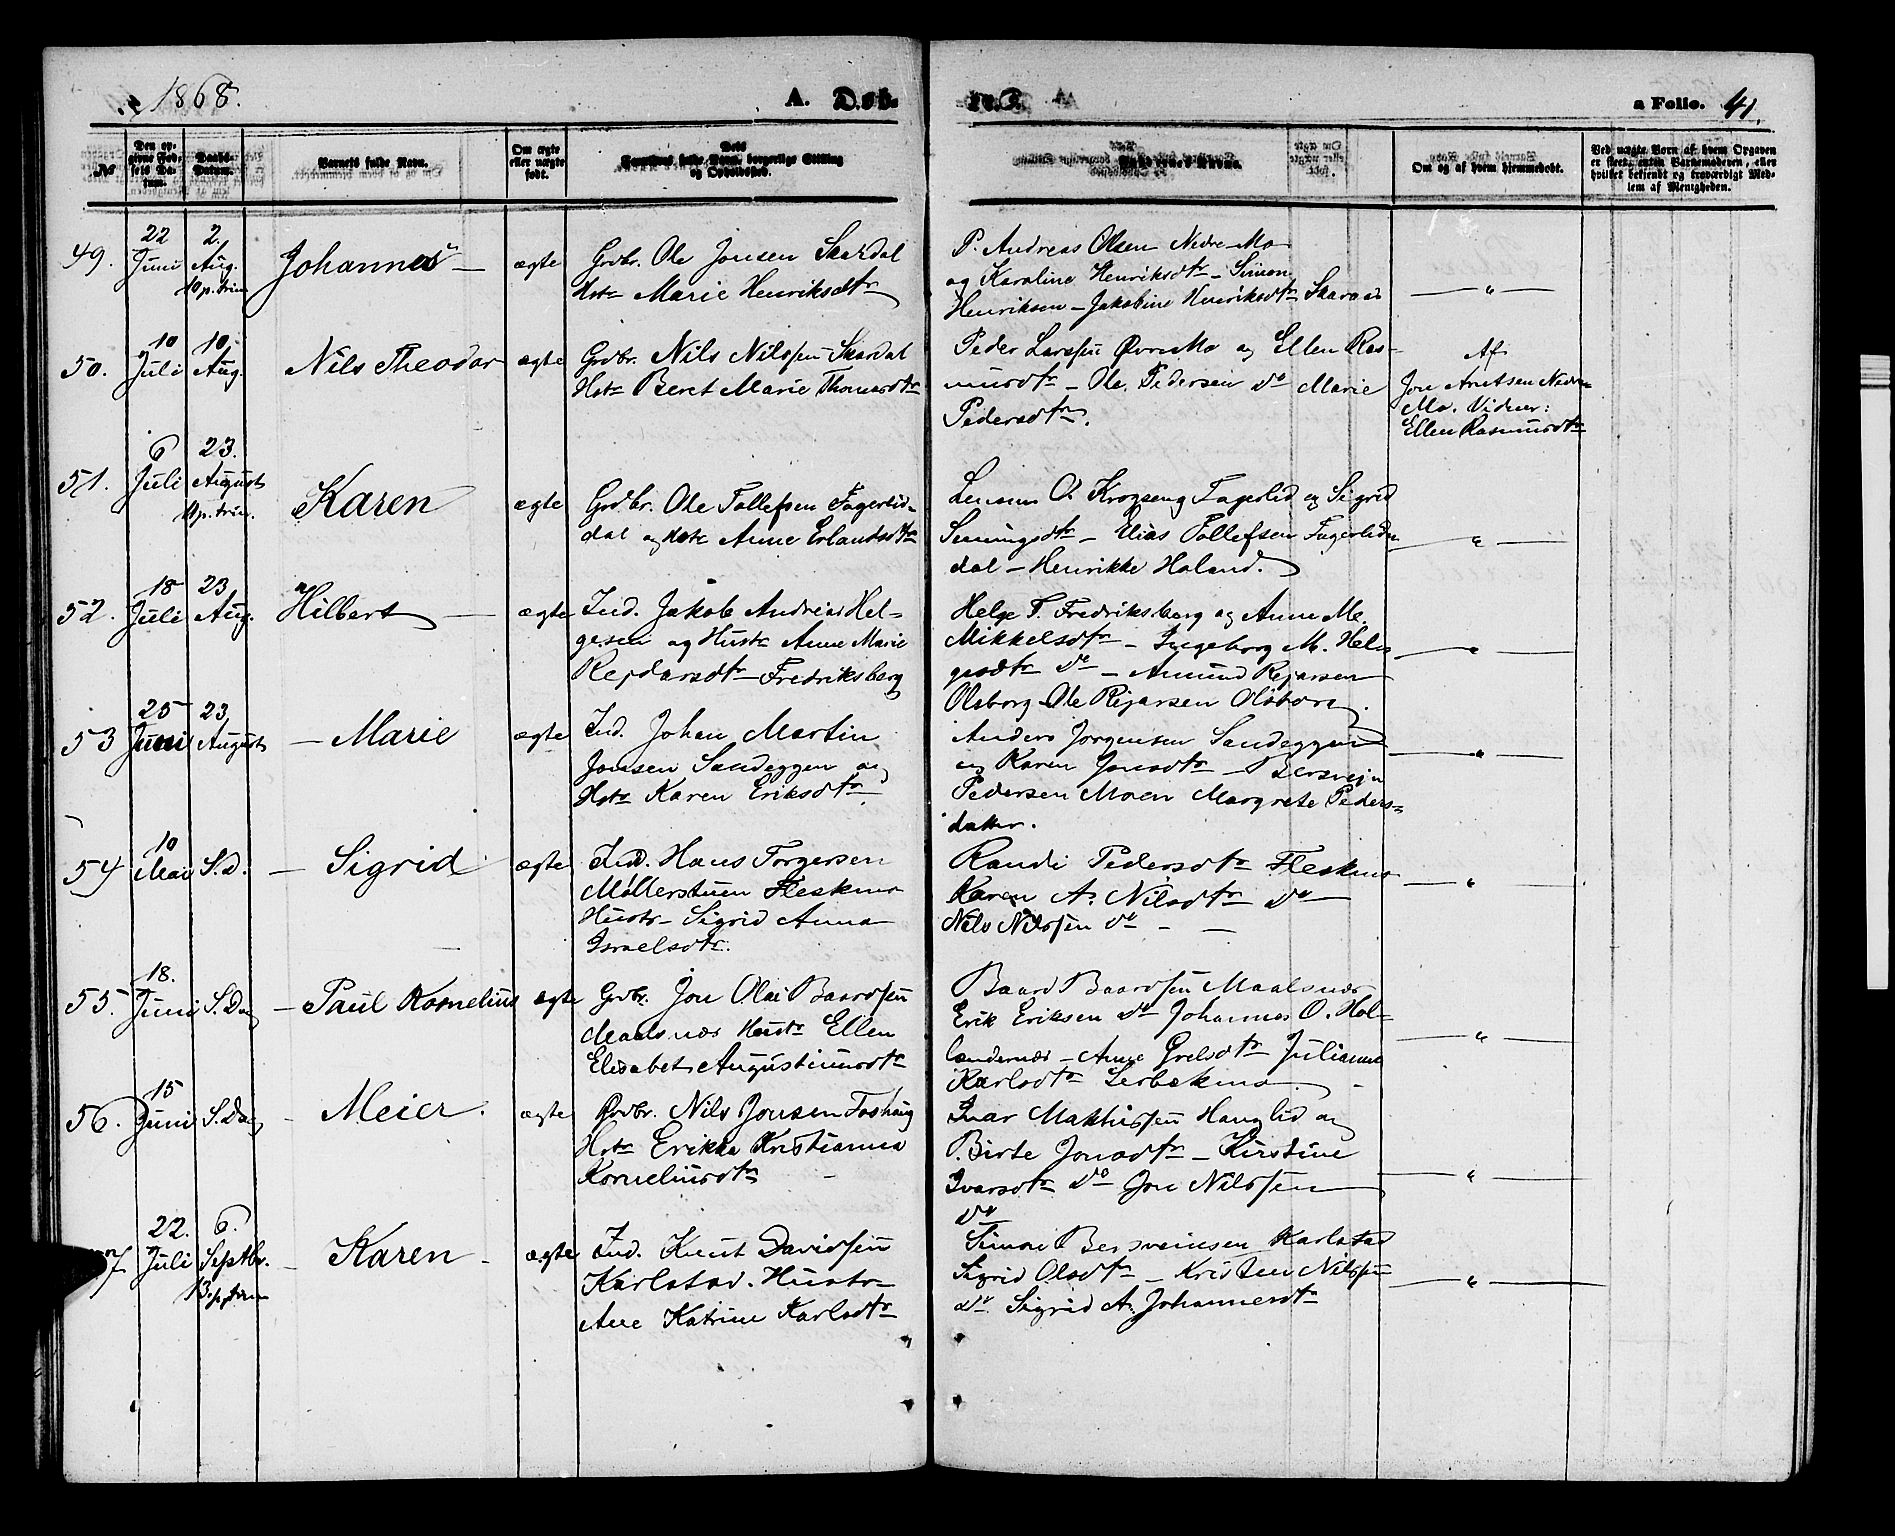 1868.
A. Døb-
te.
a Folio. 41.
No
Den op-
givne Fød-
sels Da-
tum.
Daabs-
Datum.
Barnets fulde Navn.
Om ægte
eller uægte
født.
Dets
Forældres fulde Navn, borgerlige Stilling
og Opholdssted.
Faddernes Navne.
Om og af hvem hjemmedøbt.
Ved uægte Børn af hvem Opgaven
er skeet, enten Barnemoderen, eller
hvilket bekjendt og troværdigt Med-
lem af Menigheden.
49. 22 Juni 2. Aug. 10 p. trin Johannes — ægte
Grdbr. Ole Jonsen Skardal
Hst: Marie Henriksdtr
P. Andreas Olsen Nedre-Mo
og Karoline Henriksdtr - Simon
Henriksen - Jakobine Henriksdtr
— " —
50. 10 Juli 10. Aug. Nils Theodor ægte
Grdbr. Nils Nilssen Skardal
Hst: Beret Marie Thomasdtr
Peder Larssen Øvre Mo og Ellen Ras-
musdtr - Ole Pedersen do Marie
Pedersdtr.
Af
Jon Arntsen Nedre
Mo. Vidner:
Ellen Rasmusdtr
51. 6 Juli 23. August 11 p. trin. Karen ægte
Grdbr. Ole Tollefsen Fagerlid-
dal og Hst: Anne Erlandsdtr
O. Krogseng Fagerlid og Sigrid
- Elias Tollefsen Fagerlid
dal - Henrikke Holand.
— " —
52. 18 Juli 23 Aug. Hilbert — ægte
Ind. Jakob Andreas Hel-
gesen og Hustr: Anne Marie
Rejdarsdtr Fredriksberg
Helge T. Fredriksberg og Anne M.
Mikkelsdtr - Ingeborg M. Hel-
gesdtr do - Amund Rejarsen
Olsborg Ole Rejarsen Olsborg.
— " —
53 25 Juni 23 August — Marie ægte
Ind. Johan Martin
Jonsen Sandeggen og
Hst: Karen Eriksdtr
Anders Jørgensen Sandeggen
og Karen Jonsdtr - Bersvejn
Pedersen Moen Margrete Peders-
datter.
— " —
54 10 Mai S.D. — Sigrid ægte
Ind. Hans Torgersen
Møllerstuen Fleskmo
Hustr - Sigrid Anna
Israelsdtr.
Randi Pedersdtr Fleskmo
Karen A. Nilsdtr do
Nils Nilssen do — —
— " —
55. 18. Juni S. Dag — Paul Kornelius ægte
Grdbr. Jon Olai Baardsen
Maalsnes Hustr Ellen
Elisabet Augustinusdtr
Baard Baardsen Maalsnes
Erik Eriksen do Johannes O. Hol-
lendernes - Anne Julianne
Karlsdtr
— " —
56. 15 Juni S. Dag — Meier. ægte
Grdbr. Nils Jonsen Foshaug
Hst: Erikka Kristianna
Korneliusdtr —
Ivar Mathissen Hauglid og
Birte Jonsdtr - Kirstine
Ivarsdtr do Jon Nilssen
do
— " —
57 22. Juli 6. Septbr. 13. p. trin — Karen — ægte
Ind. Knut Davidsen
Karlstad. Hustr
Ane Katrine Karlsdtr
Simon Bersveinsen Karlstad
Sigrid Olsdtr - Kristen Nilssen
do Sigrid A. Johannesdtr
— " —